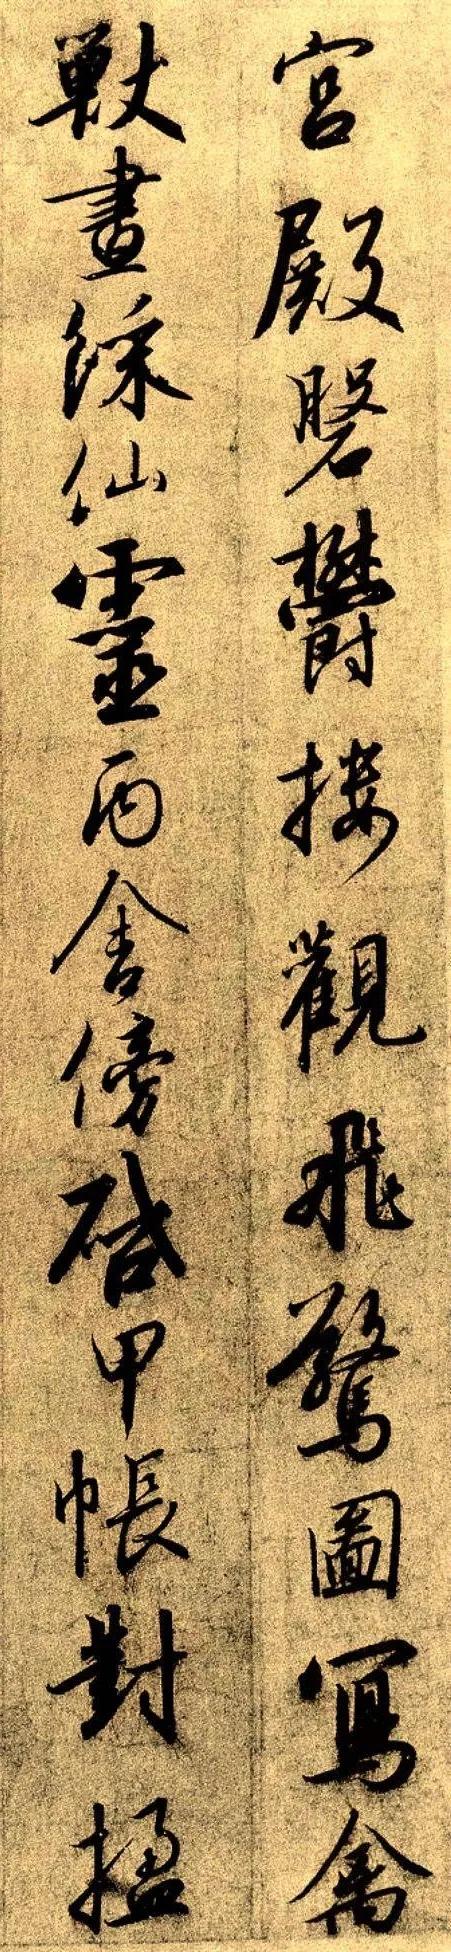 宮殿磐欝樓觀飛驚圖寫禽
獸畫綵仙靈丙舍傍啓甲帳對楹